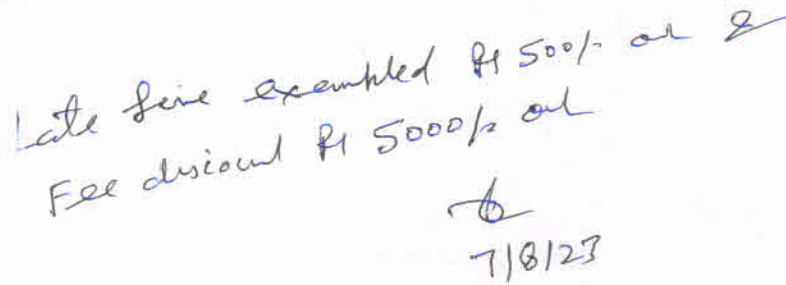 Late fine exempted Rs 500/- only &
Fee discount Rs 5000/- only
7/8/23